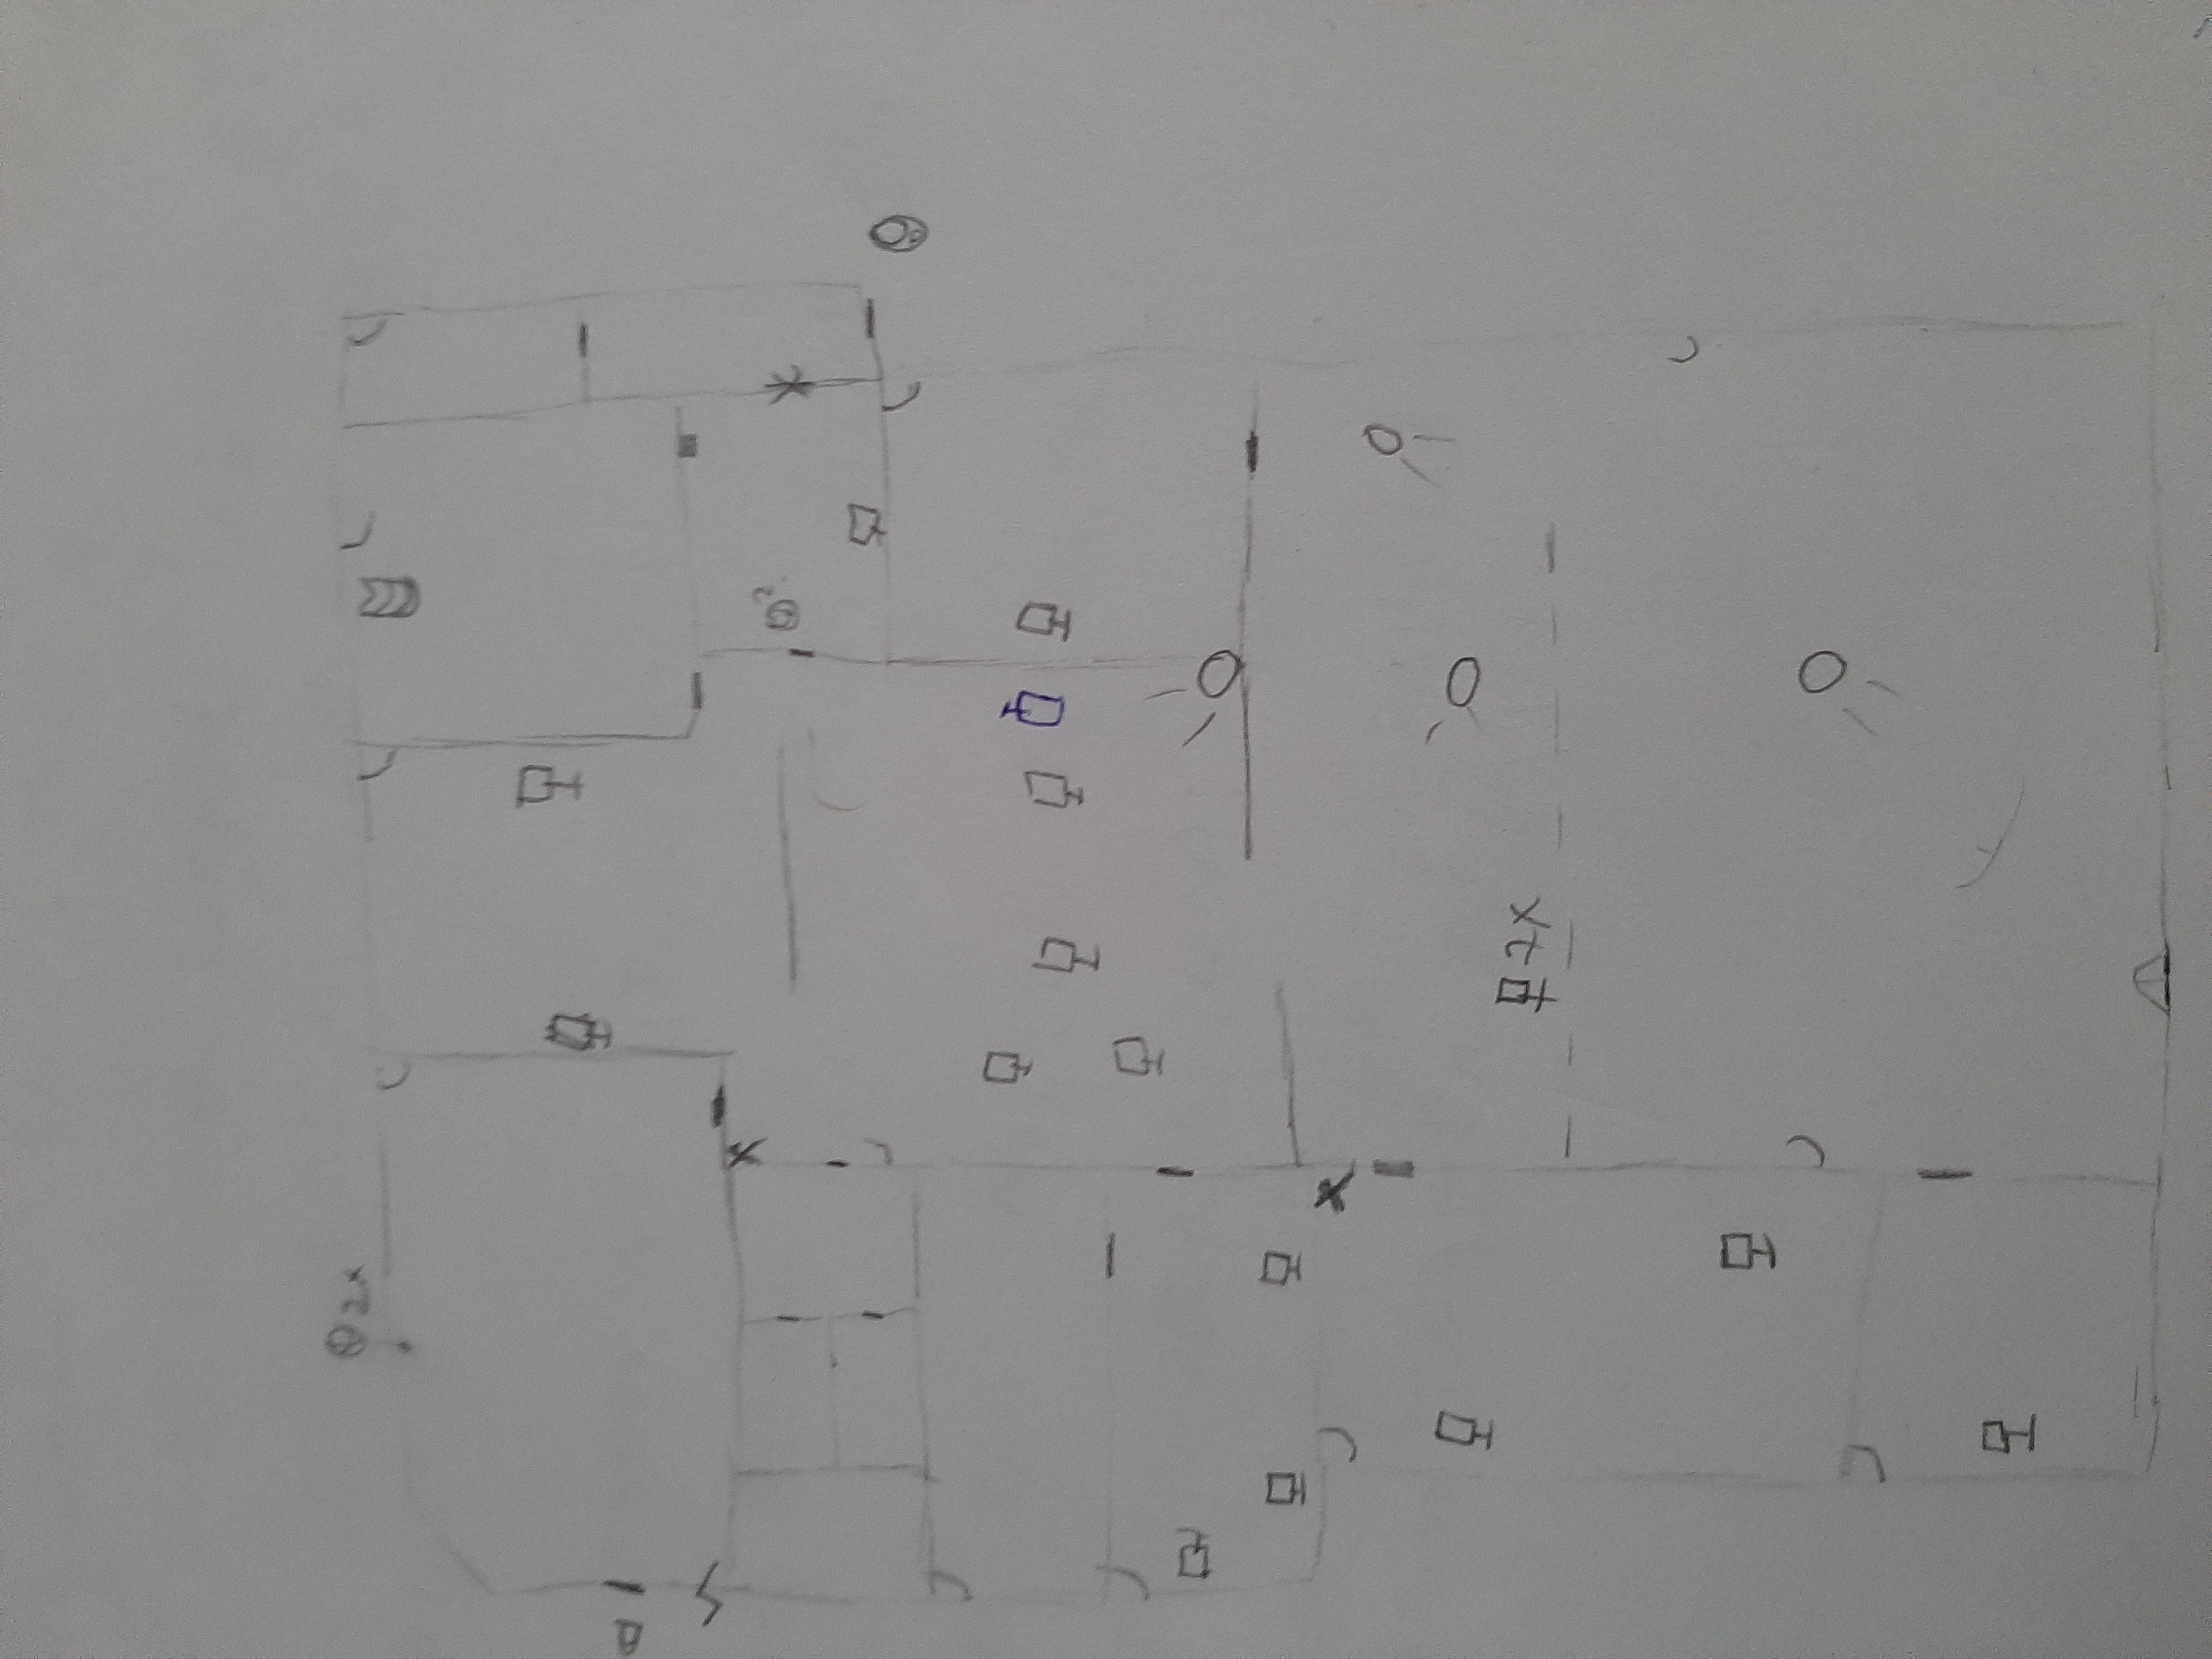 2x
2
7x